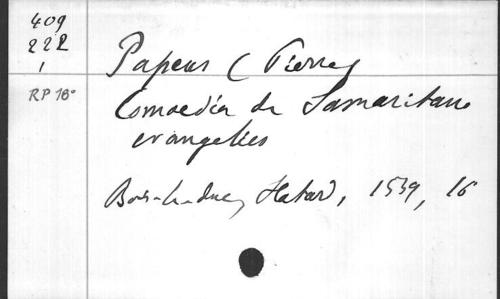 409
222
1
RP 16°
Papeus (Pierre)
Comoedia de Samaritano
evangelico
Bois-le-duc, Hatard, 1539, 16